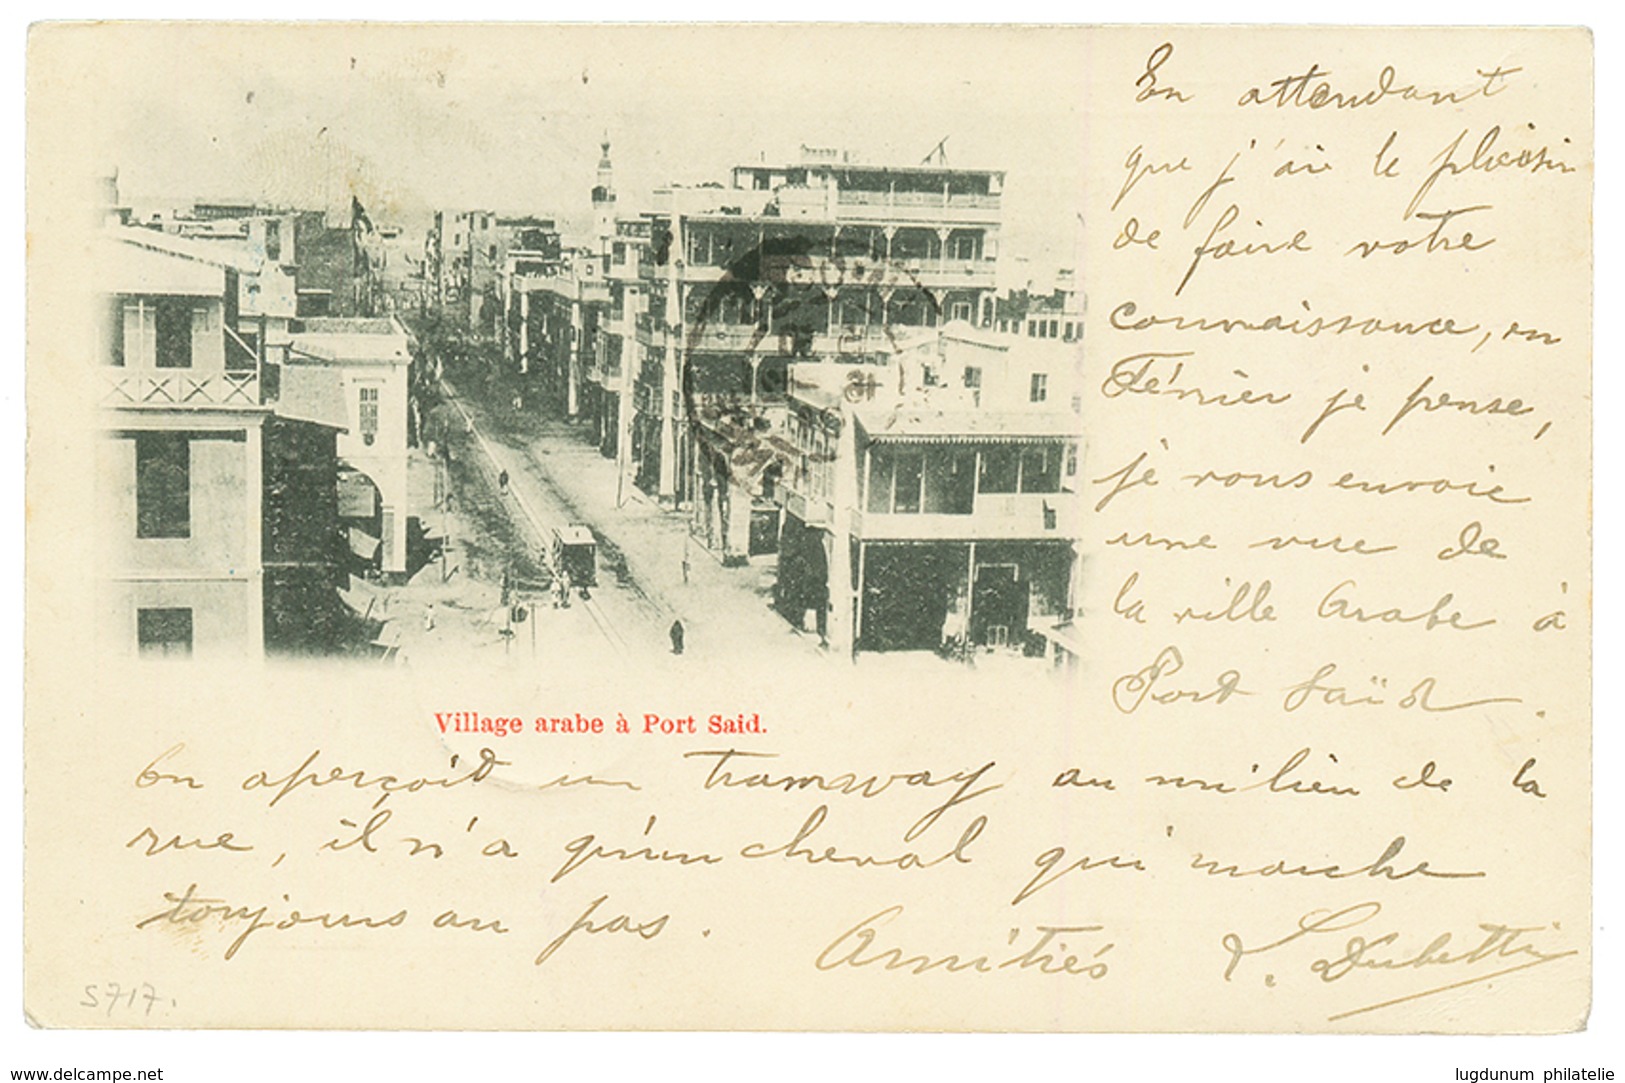 En attendant
que j'aie le plaisir
de faire votre
connaissance, en
Février je pense,
je vous envoie
une vue de
la ville Arabe à
Port Saïd.
Village arabe à Port Said.
On aperçoit un tramway au milieu de la
rue, il n'a qu'un cheval qui marche
toujours au pas.
Amitiés
S. Dubetti
5717.
www.delcampe.net
lugdunum philatelie